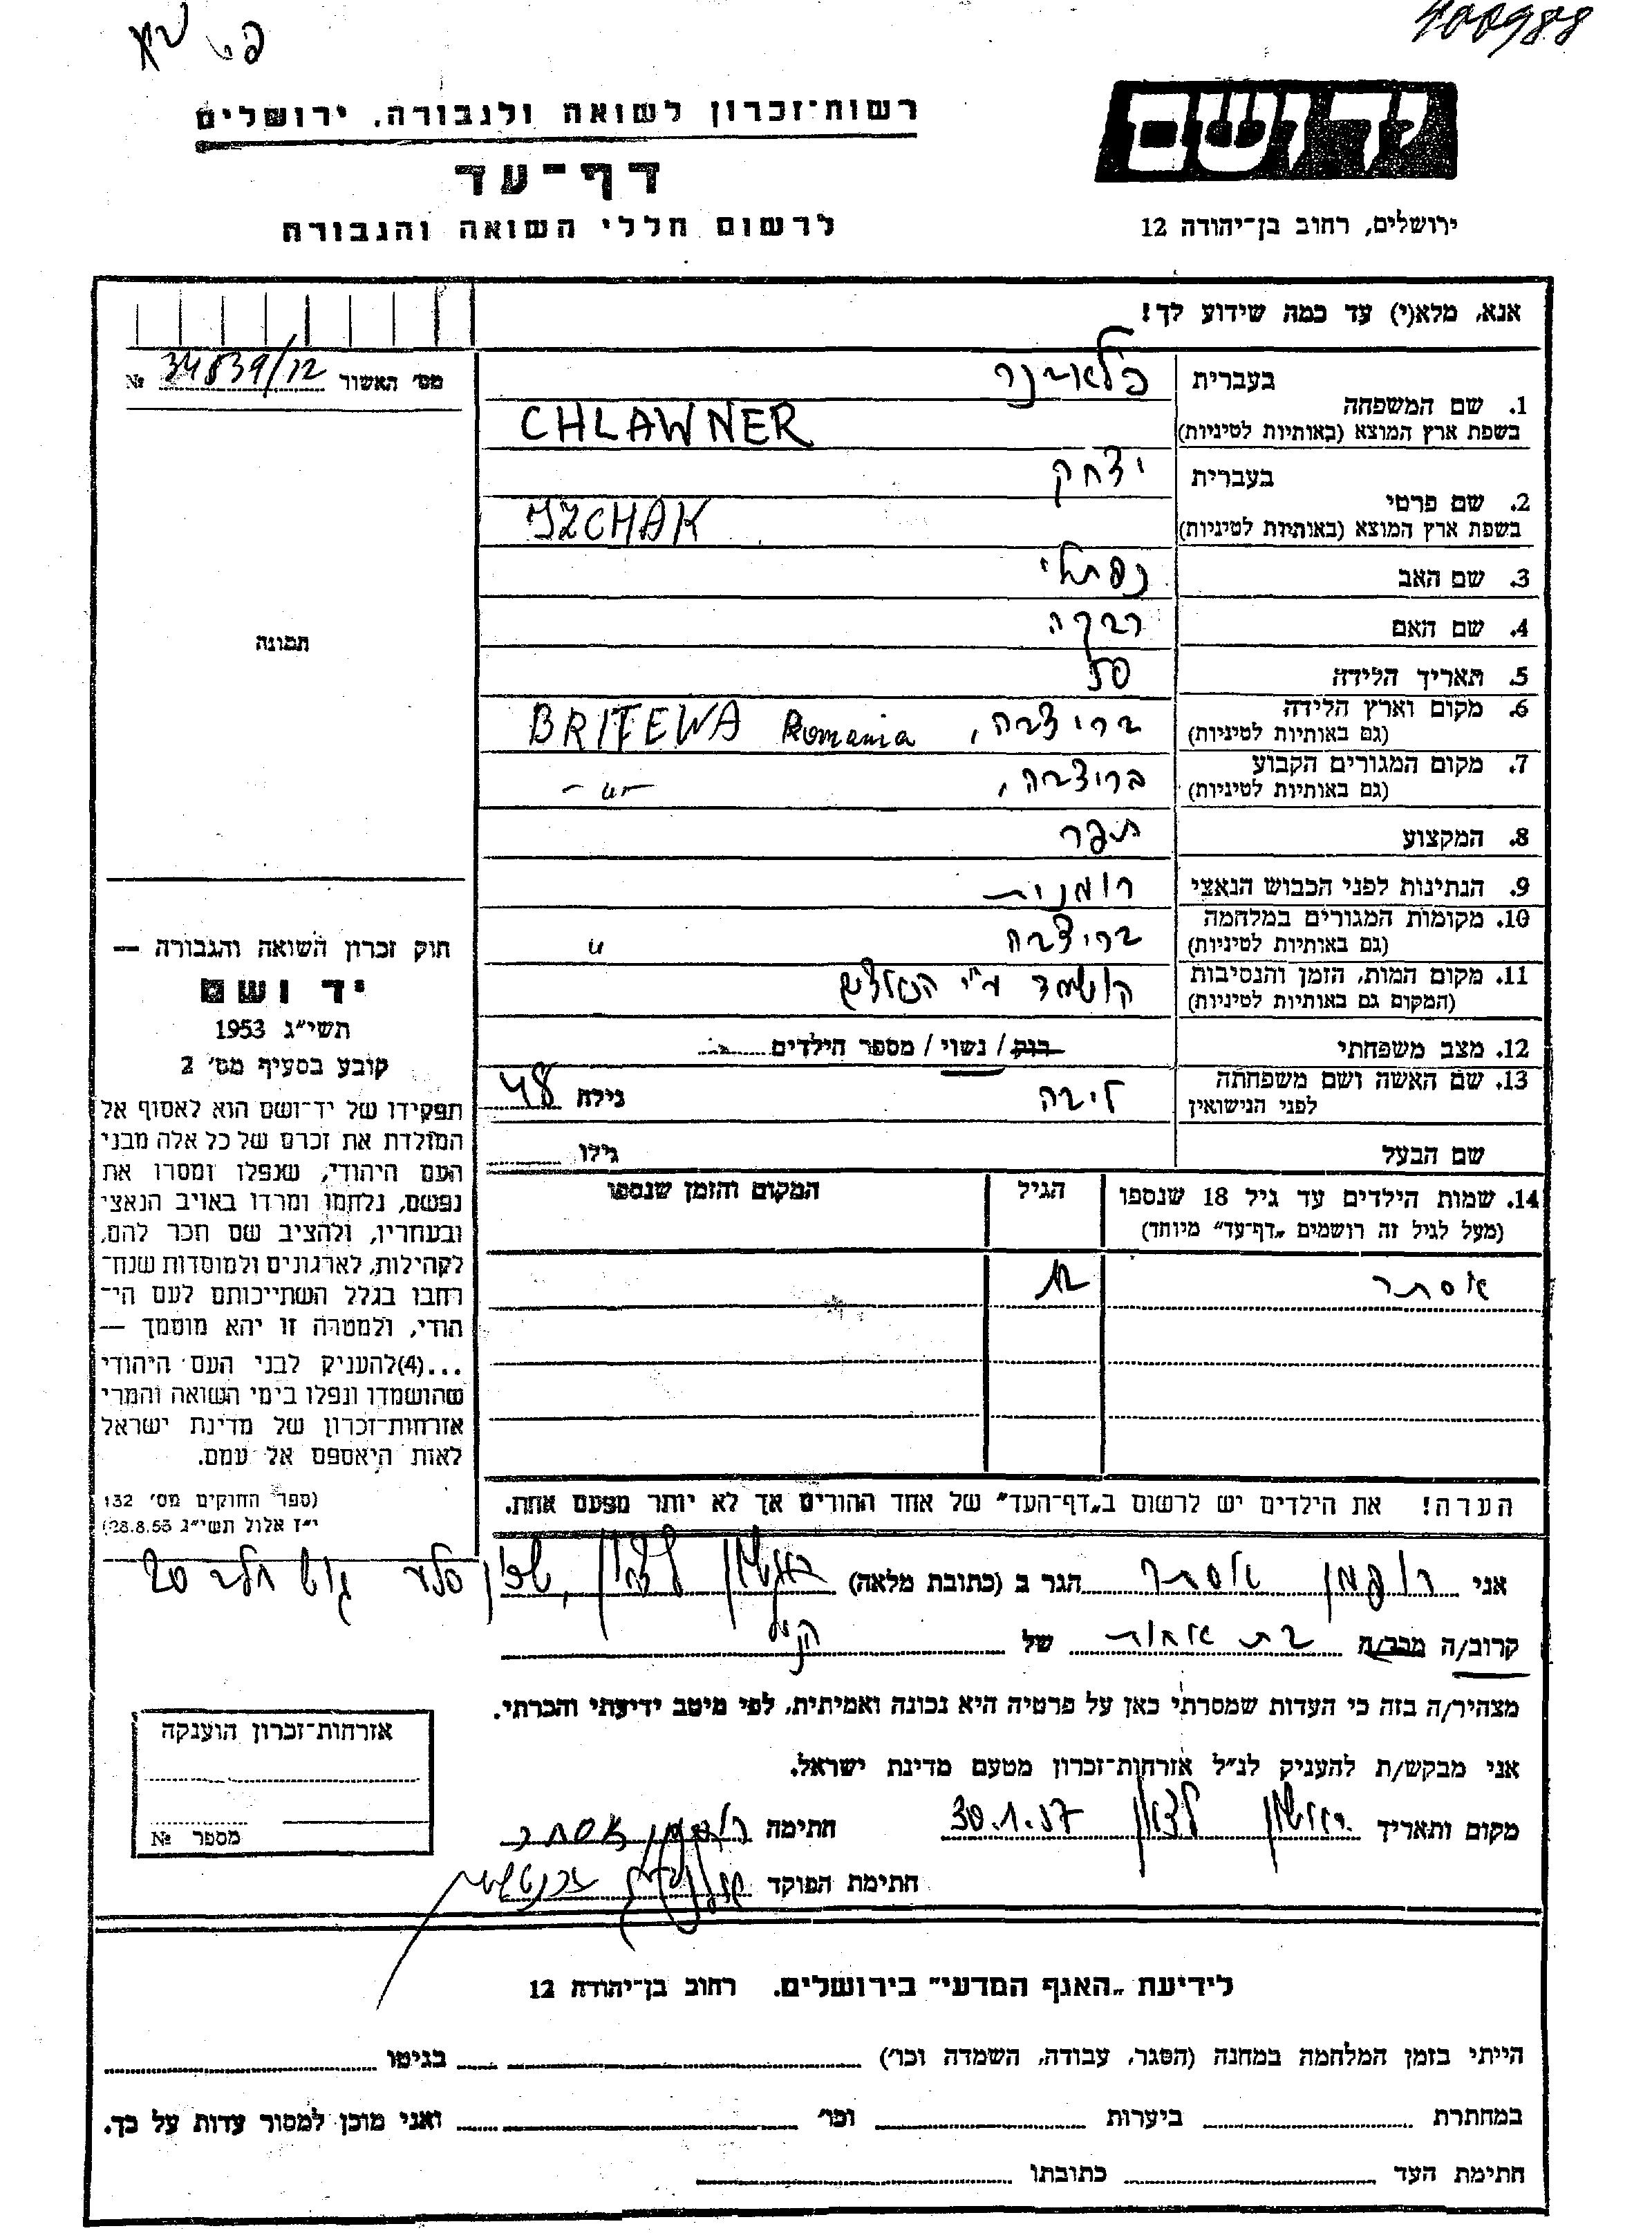 400988
רשות־זכרון לשואה ולגבורה. ירושלים
ידושם
דף־עד
לרשום חללי השואה והגבורה
ירושלים, רחוב בן־יהודה 12
אנא, מלא(י) עד כמה שידוע לך!
מס׳ האשור 34839/12 №
1. שם המשפחה בעברית
בשפת ארץ המוצא (באותיות לטיניות) CHLAWNER
2. שם פרטי בעברית יצחק
בשפת ארץ המוצא (באותיות לטיניות) IZCHAK
3. שם האב נפתלי
4. שם האם רבקה
תמונה
5. תאריך הלידה 50
6. מקום וארץ הלידה בריצבה, Romania BRITEWA
(גם באותיות לטיניות)
7. מקום המגורים הקבוע בריצבה, — " —
(גם באותיות לטיניות)
8. המקצוע תופר
9. הנתינות לפני הכבוש הנאצי רומנית
10. מקומות המגורים במלחמה בריצבה "
(גם באותיות לטיניות)
11. מקום המות, הזמן והנסיבות הושמד ע"י
(המקום גם באותיות לטיניות)
12. מצב משפחתי רוק / נשוי / מספר הילדים
13. שם האשה ושם משפחתה ליבה גילה 48
לפני הנישואין
שם הבעל גילו
14. שמות הילדים עד גיל 18 שנספו הגיל המקום והזמן שנספו
(מעל לגיל זה רושמים „דף־עד״ מיוחד)
אסתר 12
הערה! את הילדים יש לרשום ב„דף־העד״ של אחד ההורים אך לא יותר מפעם אחת.
חוק זכרון השואה והגבורה —
יד ושם
תשי״ג 1953
קובע בסעיף מס׳ 2
תפקידו של יד־ושם הוא לאסוף אל
המולדת את זכרם של כל אלה מבני
העם היהודי, שנפלו ומסרו את
נפשם, נלחמו ומרדו באויב הנאצי
ובעחריו, ולהציב שם וזכר להם,
לקהילות, לארגונים ולמוסדות שנח־
רחבו בגלל השתייכותם לעם הי־
הודי, ולמטרה זו יהא מוסמך —
...(4)להעניק לבני העם היהודי
שהושמדו ונפלו בימי השואה והמרי
אזרחות־זכרון של מדינת ישראל
לאות היאספם אל עמם.
(ספר החוקים מס׳ 132
י״ז אלול תשי״ג 28.8.53)
אני אסתר הגר ב (כתובת מלאה) ראשון לציון, שכון סלע גוש חלב 20
קרוב/ה מכר/ה בת אחות של הנ"ל
מצהיר/ה בזה כי העדות שמסרתי כאן על פרטיה היא נכונה ואמיתית, לפי מיטב ידיעתי והכרתי.
אני מבקש/ת להעניק לנ״ל אזרחות־זכרון מטעם מדינת ישראל.
מקום ותאריך ראשון לציון 30.1.57 חתימה אסתר
חתימת הפוקד
אזרחות־זכרון הוענקה
מספר №
לידיעת „האגף המדעי״ בירושלים. רחוב בן־יהודה 12
הייתי בזמן המלחמה במחנה (הסגר, עבודה, השמדה וכו׳) בגיטו
במחתרת ביערות וכו׳ ואני מוכן למסור עדות על כך.
חתימת העד כתובתו